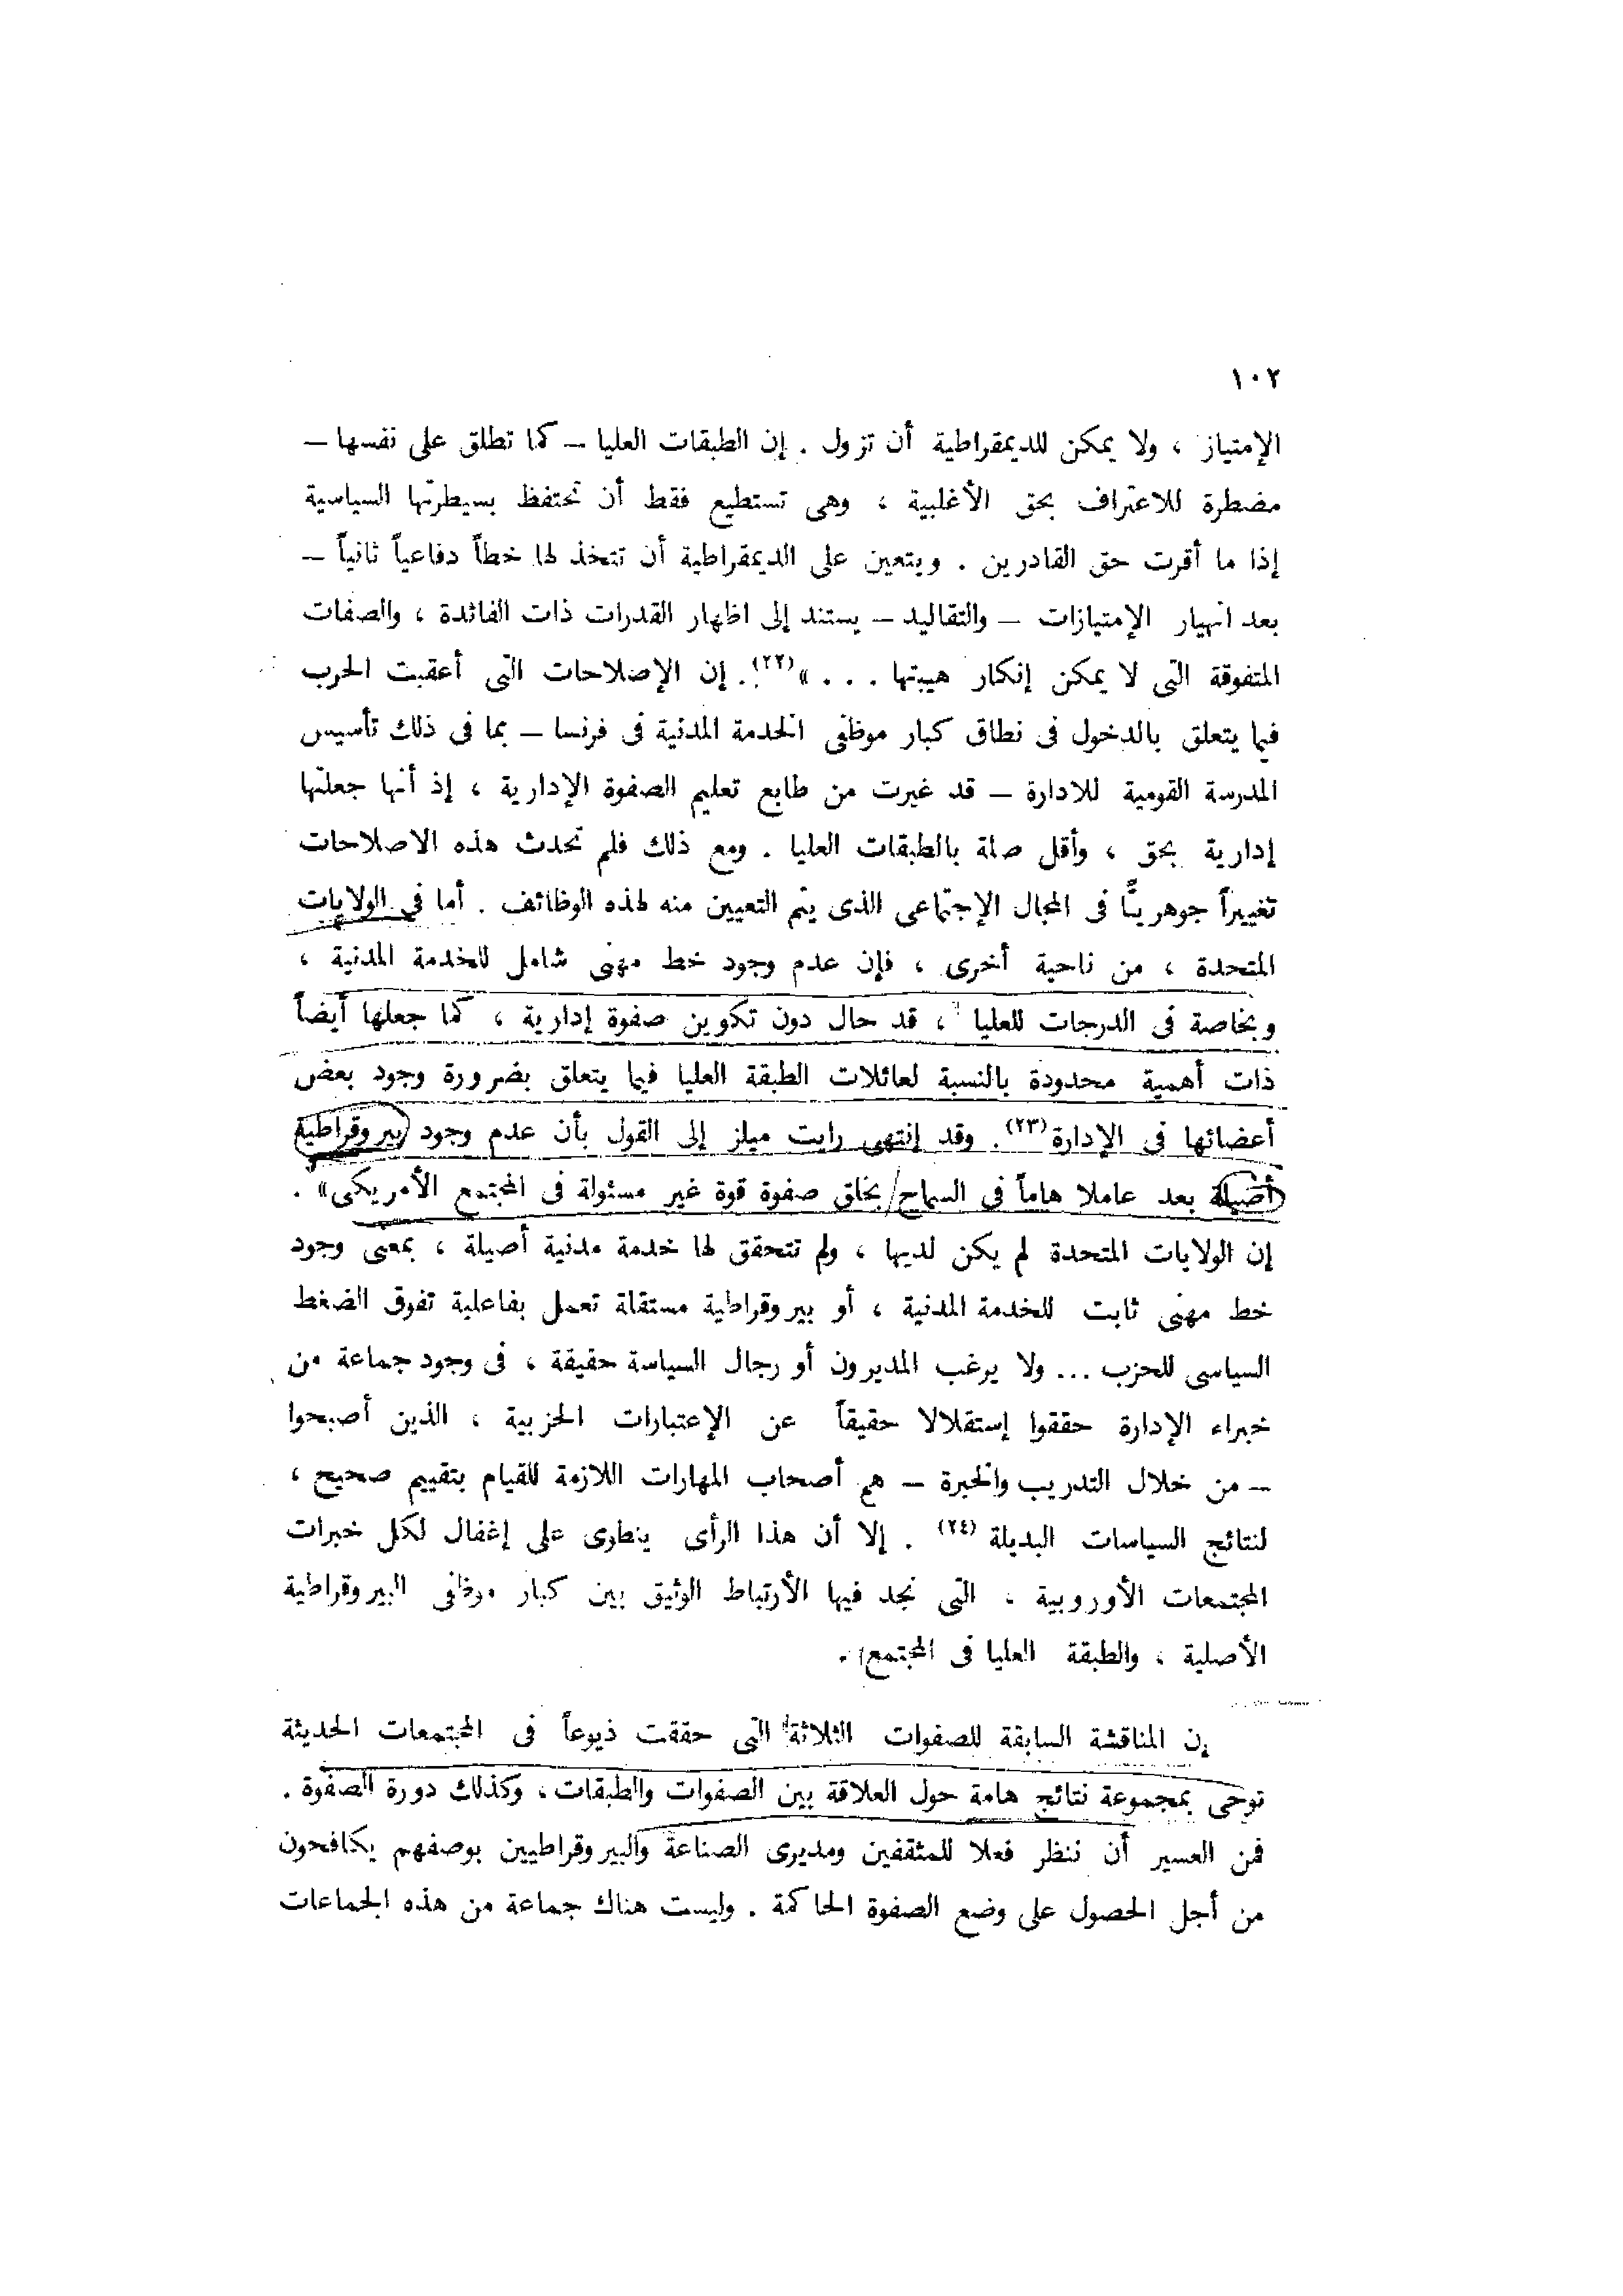 ١٠٢
الإمتياز ، ولا يمكن للديمقراطية أن تزول . إن الطبقات العليا – كما تطلق على نفسها –
مضطرة للاعتراف بحق الأغلبية ، وهى تستطيع فقط أن تحتفظ بسيطرتها السياسية
إذا ما أقرت حق القادرين . ويتعين على الديمقراطية أن تتخذ لها خطاً دفاعياً ثانياً –
بعد انهيار الإمتيازات – والتقاليد – يستند إلى اظهار القدرات ذات الفائدة ، والصفات
المتفوقة التى لا يمكن إنكار هيبتها . . . »(٢٢). إن الإصلاحات التى أعقبت الحرب
فيما يتعلق بالدخول فى نطاق كبار موظفى الخدمة المدنية فى فرنسا – بما فى ذلك تأسيس
المدرسة القومية للادارة – قد غيرت من طابع تعليم الصفوة الإدارية ، إذ أنها جعلتها
إدارية بحق ، وأقل صلة بالطبقات العليا . ومع ذلك فلم تحدث هذه الاصلاحات
تغييراً جوهريًّا فى المجال الإجتماعى الذى يتم التعيين منه لهذه الوظائف . أما فى الولايات
المتحدة ، من ناحية أخرى ، فإن عدم وجود خط مهنى شامل للخدمة المدنية ،
وبخاصة فى الدرجات للعليا ، قد حال دون تكوين صفوة إدارية ، كما جعلها أيضاً
ذات أهمية محدودة بالنسبة لعائلات الطبقة العليا فيما يتعلق بضرورة وجود بعض
أعضائها فى الإدارة(٢٣). وقد إنتهى رايت ميلز إلى القول بأن عدم وجود (بيروقراطية
أصيلة) بعد عاملا هاماً فى السماح بخلق صفوة قوة غير مسئولة فى المجتمع الأمريكى» .
إن الولايات المتحدة لم يكن لديها ، ولم تتحقق لها خدمة مدنية أصيلة ، بمعنى وجود
خط مهنى ثابت للخدمة المدنية ، أو بيروقراطية مستقلة تعمل بفاعلية تفوق الضغط
السياسى للحزب ... ولا يرغب المديرون أو رجال السياسة حقيقة ، فى وجود جماعة من
خبراء الإدارة حققوا إستقلالا حقيقاً عن الإعتبارات الحزبية ، الذين أصبحوا
– من خلال التدريب والخبرة – هم أصحاب المهارات اللازمة للقيام بتقييم صحيح ،
لنتائج السياسات البديلة (٢٤) . إلا أن هذا الرأى ينطوى على إغفال لكل خبرات
المجتمعات الأوروبية ، التى نجد فيها الأرتباط الوثيق بين كبار موظفى البيروقراطية
الأصلية ، والطبقة العليا فى المجتمع .
إن المناقشة السابقة للصفوات الثلاثة التى حققت ذيوعاً فى المجتمعات الحديثة
توحى بمجموعة نتائج هامة حول العلاقة بين الصفوات والطبقات ، وكذلك دورة الصفوة .
فمن العسير أن ننظر فعلا للمثقفين ومديرى الصناعة والبيروقراطيين بوصفهم يكافحون
من أجل الحصول على وضع الصفوة الحاكمة . وليست هناك جماعة من هذه الجماعات